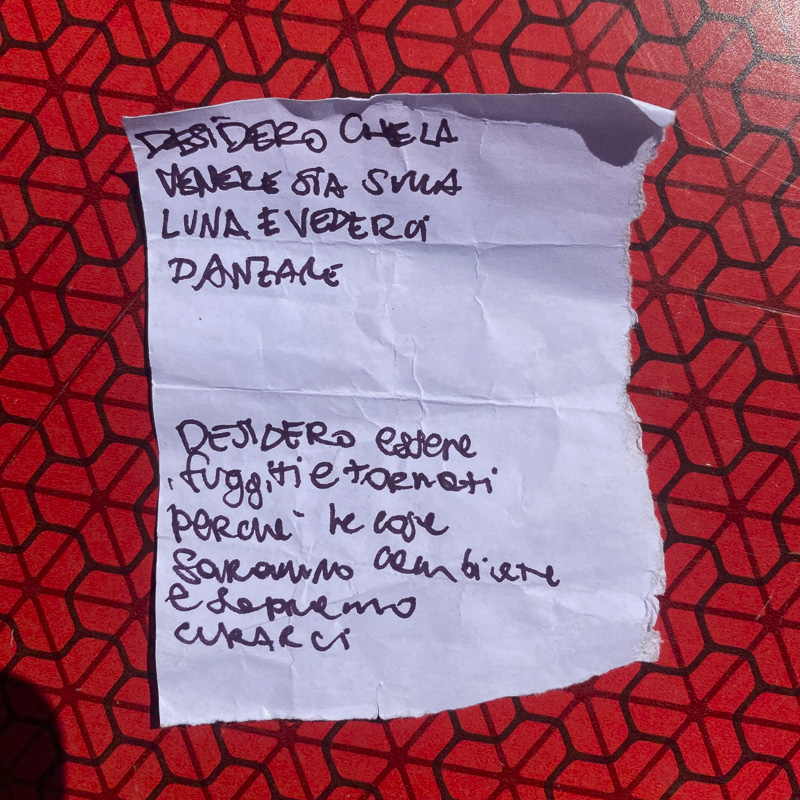 DESIDERO CHE LA
VENERE STA SULLA
LUNA E VEDERCI
DANZARE
DESIDERO essere
fuggiti e tornati
perché le cose
saranno cambiate
e sapremo
CURARCI